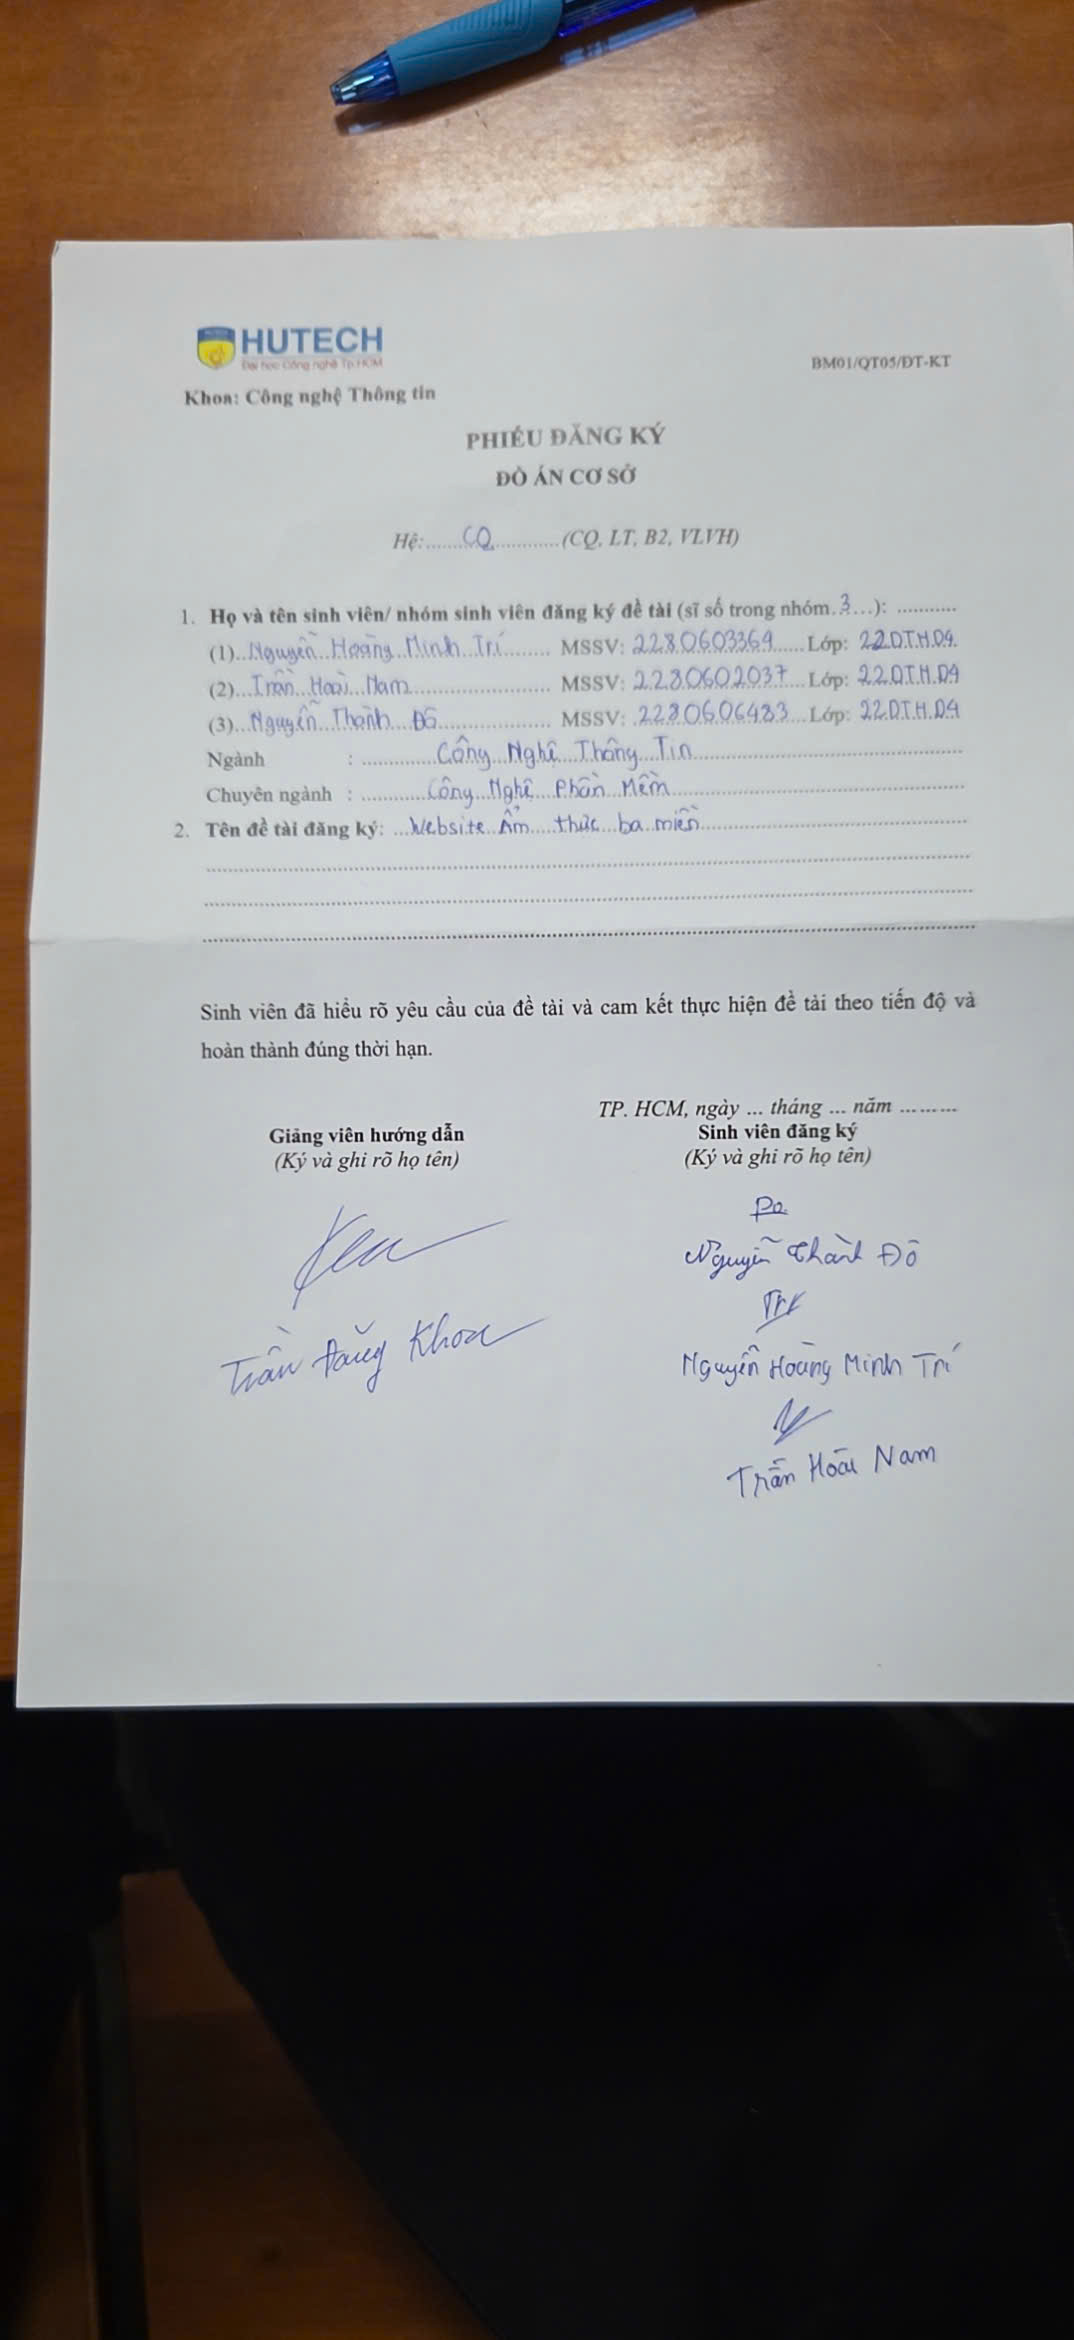 HUTECH
Đại học Công nghệ Tp.HCM
BM01/QT05/ĐT-KT
Khoa: Công nghệ Thông tin
PHIẾU ĐĂNG KÝ
ĐỒ ÁN CƠ SỞ
Hệ:........CQ..............(CQ, LT, B2, VLVH)
1. Họ và tên sinh viên/ nhóm sinh viên đăng ký đề tài (sĩ số trong nhóm.3...): ...........
(1)..Nguyễn Hoàng Minh Trí........ MSSV: 2280603369.....Lớp: 22DTHD9
(2)...Trần Hoài Nam.......................... MSSV: 2280602037...Lớp: 22DTHD9
(3)...Nguyễn Thành Đô..................... MSSV: .2280606483...Lớp: 22DTHD9
Ngành : .............Công Nghệ Thông Tin..................................................
Chuyên ngành : ............Công Nghệ Phần Mềm.......................................................
2. Tên đề tài đăng ký: ...Website Ẩm thực ba miền..................................................
Sinh viên đã hiểu rõ yêu cầu của đề tài và cam kết thực hiện đề tài theo tiến độ và
hoàn thành đúng thời hạn.
TP. HCM, ngày ... tháng ... năm .........
Giảng viên hướng dẫn
Sinh viên đăng ký
(Ký và ghi rõ họ tên)
(Ký và ghi rõ họ tên)
Nguyễn Thành Đô
Trí
Trần Đăng Khoa
Nguyễn Hoàng Minh Trí
Trần Hoài Nam